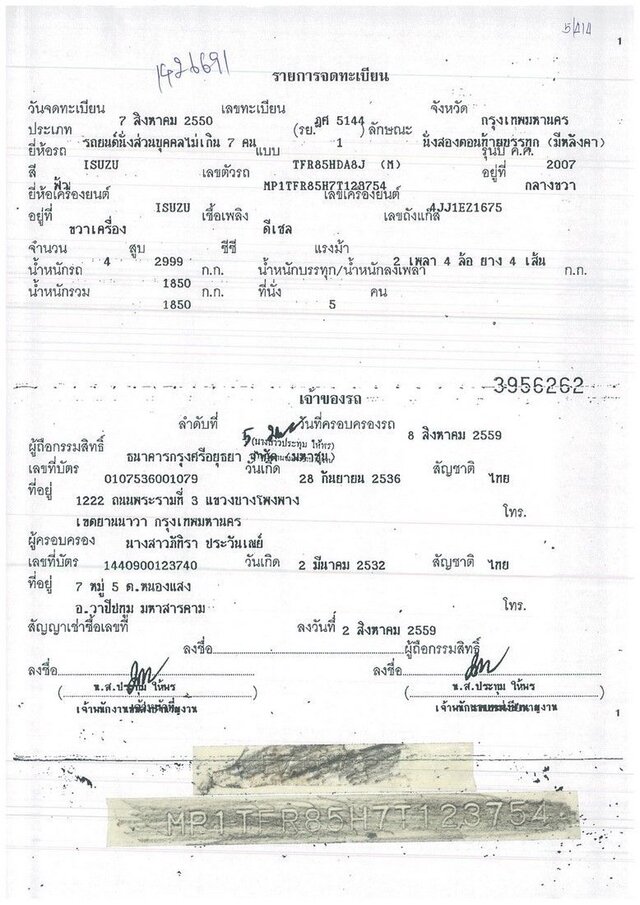 5/414
1
1426691
รายการจดทะเบียน
วันจดทะเบียน 7 สิงหาคม 2550 เลขทะเบียน ฎศ 5144 จังหวัด กรุงเทพมหานคร
ประเภท รถยนต์นั่งส่วนบุคคลไม่เกิน 7 คน (รย. 1 ) ลักษณะ นั่งสองตอนท้ายบรรทุก (มีหลังคา)
ยี่ห้อรถ ISUZU แบบ TFR85HDA8J (M) รุ่นปี ค.ศ. 2007
สี ฟ้า เลขตัวรถ MP1TFR85H7T123754 อยู่ที่ กลางขวา
ยี่ห้อเครื่องยนต์ ISUZU เลขเครื่องยนต์ 4JJ1EZ1675
อยู่ที่ ขวาเครื่อง เชื้อเพลิง ดีเซล เลขถังแก๊ส
จำนวน 4 สูบ 2999 ซีซี แรงม้า 2 เพลา 4 ล้อ ยาง 4 เส้น
น้ำหนักรถ 1850 ก.ก. น้ำหนักบรรทุก/น้ำหนักลงเพลา ก.ก.
น้ำหนักรวม 1850 ก.ก. ที่นั่ง 5 คน
3956262
เจ้าของรถ
ลำดับที่ 5 วันที่ครอบครองรถ 8 สิงหาคม 2559
(นางสาวประทุม ให้พร)
ผู้ถือกรรมสิทธิ์ ธนาคารกรุงศรีอยุธยา จำกัด (มหาชน)
เลขที่บัตร 0107536001079 วันเกิด 28 กันยายน 2536 สัญชาติ ไทย
ที่อยู่ 1222 ถนนพระรามที่ 3 แขวงบางโพงพาง
เขตยานนาวา กรุงเทพมหานคร โทร.
ผู้ครอบครอง นางสาวภัทิรา ประวันเณย์
เลขที่บัตร 1440900123740 วันเกิด 2 มีนาคม 2532 สัญชาติ ไทย
ที่อยู่ 7 หมู่ 5 ต.หนองแสง
อ.วาปีปทุม มหาสารคาม โทร.
สัญญาเช่าซื้อเลขที่ ลงวันที่ 2 สิงหาคม 2559
ลงชื่อ ผู้ถือกรรมสิทธิ์
ลงชื่อ ลงชื่อ
( น.ส.ประทุม ให้พร ) ( น.ส.ประทุม ให้พร )
1
MP1TFR85H7T123754